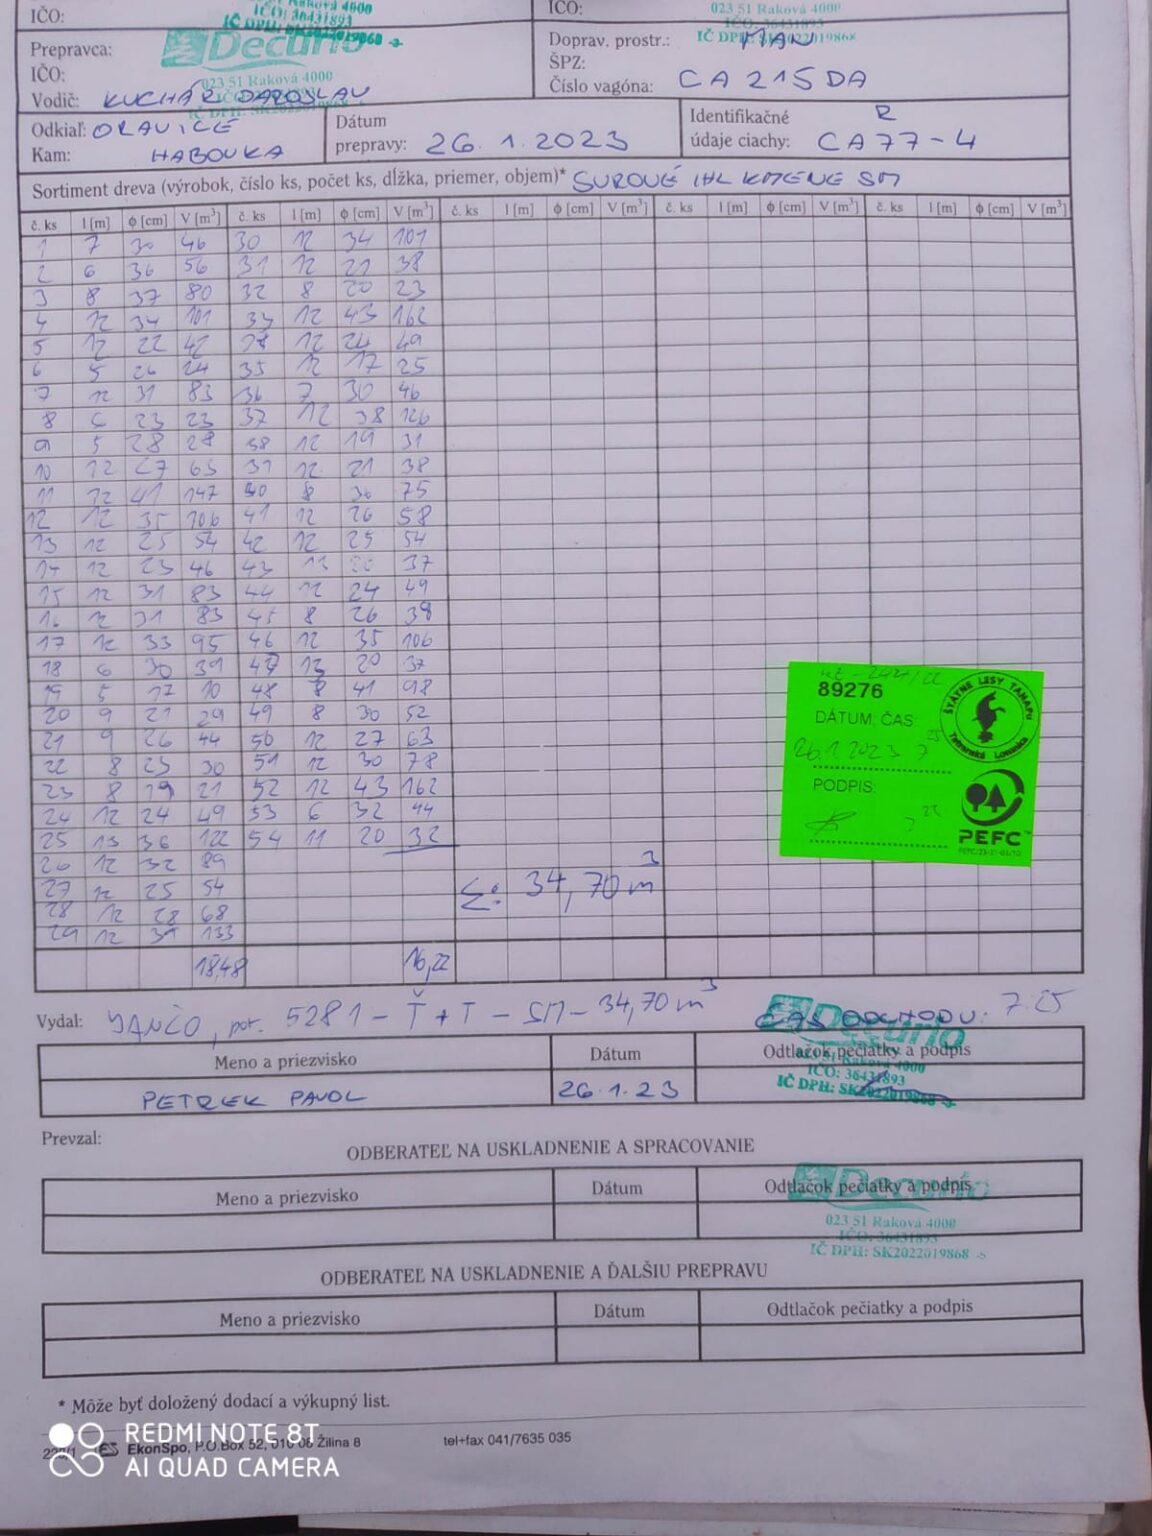 IČO:
Raková 4000
IČO: 36431893
IČ DPH: SK2022019868
IČO:
023 51 Raková 4000
IČO: 36431893
IČ DPH: SK2022019868
Prepravca:
IČO:
Vodič: KUCHÁR JAROSLAV
Decurio
023 51 Raková 4000
Doprav. prostr.: MAN
ŠPZ:
Číslo vagóna: CA 215 DA
Odkiaľ: ORAVICE
Kam: HABOVKA
Dátum
prepravy: 26. 1. 2023
Identifikačné R
údaje ciachy: CA77-4
Sortiment dreva (výrobok, číslo ks, počet ks, dĺžka, priemer, objem)* SUROVÉ IHL KMENE SM
č. ks l [m] ϕ [cm] V [m³] č. ks l [m] ϕ [cm] V [m³] č. ks l [m] ϕ [cm] V [m³] č. ks l [m] ϕ [cm] V [m³] č. ks l [m] ϕ [cm] V [m³]
1 7 30 46 30 12 34 101
2 6 36 56 31 12 21 38
3 8 37 80 32 8 20 23
4 12 34 101 33 12 43 162
5 12 22 42 34 12 24 49
6 5 26 24 35 12 17 25
7 12 31 83 36 7 30 46
8 6 23 23 37 12 38 126
9 5 28 28 38 12 19 31
10 12 27 63 39 12 21 38
11 12 41 147 40 8 36 75
12 12 35 106 41 12 26 58
13 12 25 54 42 12 25 54
14 12 23 46 43 13 20 37
15 12 31 83 44 12 24 49
16 12 31 83 45 8 26 38
17 12 33 95 46 12 35 106
18 6 30 39 47 13 20 37
19 5 17 10 48 8 41 98
20 9 21 29 49 8 30 52
21 9 26 44 50 12 27 63
22 8 23 30 51 12 30 78
23 8 19 21 52 12 43 162
24 12 24 49 53 6 32 44
25 13 36 122 54 11 20 32
26 12 32 89
27 12 25 54
28 12 28 68
29 12 39 133
Σ: 34,70 m³
18,48 16,22
89276
DÁTUM, ČAS:
26.1.2023 7 25
PODPIS:
ŠTÁTNE LESY TANAPu
Tatranská Lomnica
PEFC
Vydal: JANČO, por. 5281 - Ť + T - SM - 34,70 m³ ČAS ODCHODU: 7.25
Meno a priezvisko Dátum Odtlačok pečiatky a podpis
PETREK PAVOL 26.1.23
Decurio
023 51 Raková 4000
IČO: 36431893
IČ DPH: SK2022019868
Prevzal:
ODBERATEĽ NA USKLADNENIE A SPRACOVANIE
Meno a priezvisko Dátum Odtlačok pečiatky a podpis
Decurio
023 51 Raková 4000
IČO: 36431893
IČ DPH: SK2022019868
ODBERATEĽ NA USKLADNENIE A ĎALŠIU PREPRAVU
Meno a priezvisko Dátum Odtlačok pečiatky a podpis
* Môže byť doložený dodací a výkupný list.
EkonSpo, P.O.Box 52, 010 08 Žilina 8 tel+fax 041/7635 035
REDMI NOTE 8T
AI QUAD CAMERA